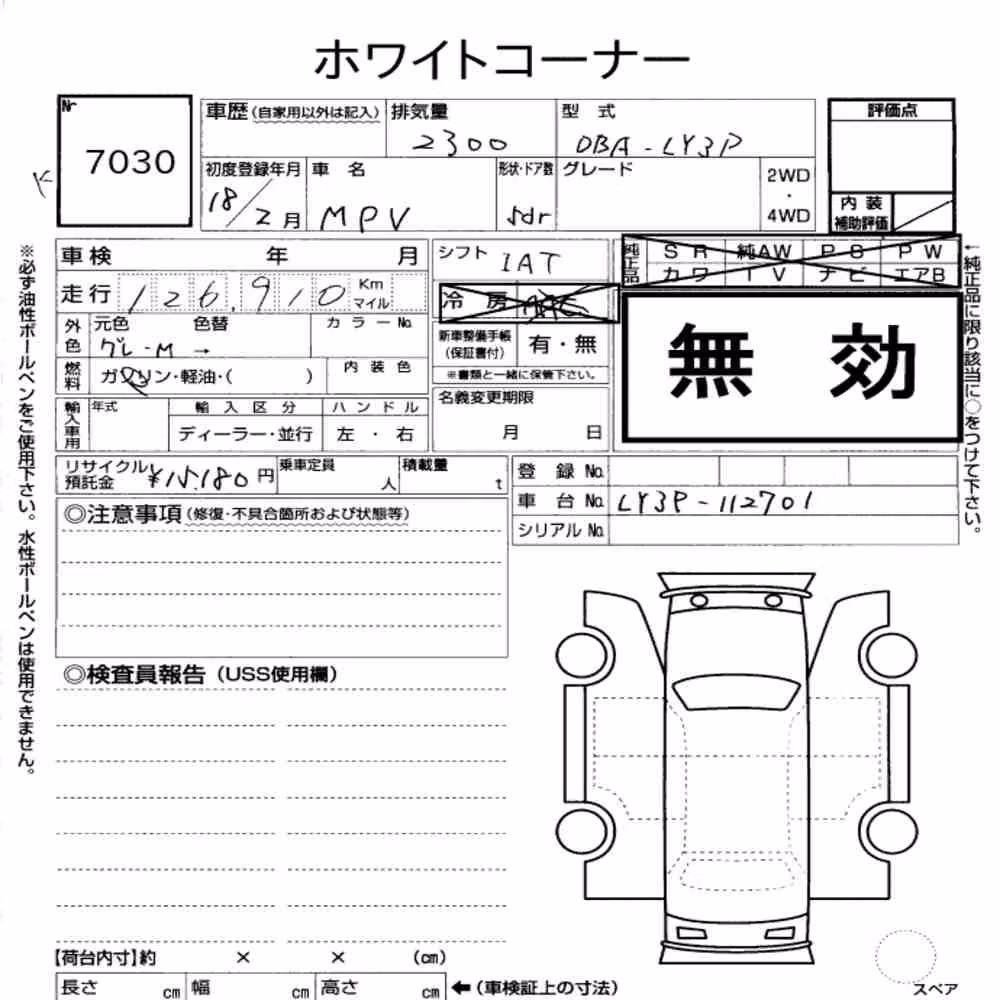 ホワイトコーナー
Nr
7030
車歴(自家用以外は記入) 排気量 2300 型 式 DBA-LY3P
評価点
初度登録年月 18/2月 車 名 MPV 形状・ドア数 5dr グレード 2WD・4WD
内 装
補助評価
車検 年 月
シフト IAT
純正品 SR 純AW PS PW
カワ TV ナビ エアB
走行 126,910 Km マイル
冷 房
外色 元色 グレ-M → 色替 カ ラ ー No.
新車整備手帳(保証書付) 有・無
無 効
燃料 ガソリン・軽油・( ) 内 装 色
※書類と一緒に保管下さい。
輸入車用 年式 輸 入 区 分 ハ ン ド ル
ディーラー・並行 左 ・ 右
名義変更期限
月 日
リサイクル預託金 ¥15,180円 乗車定員 人 積載量 t
登 録 No.
車 台 No. LY3P-112701
シリアル No.
◎注意事項(修復・不具合箇所および状態等)
◎検査員報告(USS使用欄)
【荷台内寸】約 × × (cm)
長さ cm 幅 cm 高さ cm ←(車検証上の寸法)
スペア
※必ず油性ボールペンをご使用下さい。水性ボールペンは使用できません。
←純正品に限り該当に○をつけて下さい。